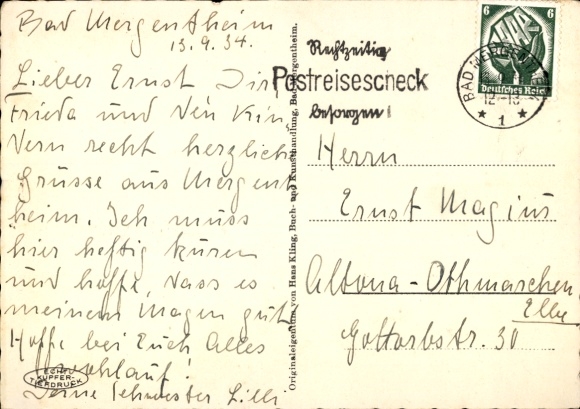 Bad Mergentheim
13.9.34.
Lieber Ernst Dir,
Frieda und Den Kin
dern recht herzlich
Grüsse aus Mergent
heim. Ich muss
hier heftig kuren
und hoffe, dass es
meinem Magen gut
Hoffe bei Euch Alles
wohlauf!
Deine Schwester Lilli
ECHTER
KUPFER-
TIEFDRUCK
Originaleigentum von Hans Kling, Buch- und Kunsthandlung, Bad Mergentheim.
Rechtzeitig
Postreisescheck
besorgen!
BAD MERGENTHEIM
12-13
* 1 *
6 6
SAAR
Deutsches Reich
Herrn
Ernst Magius
Altona-Othmarschen
Elbe
Gottorbstr. 30